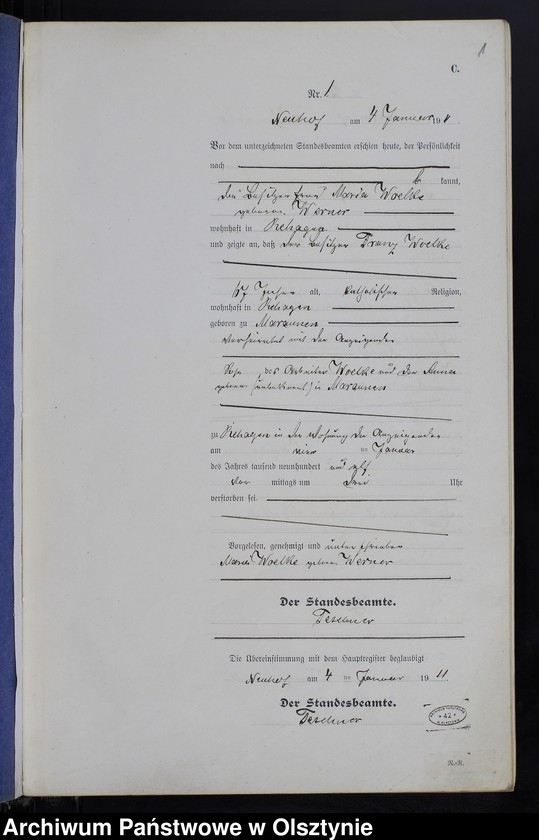 1
C.
Nr. 1
Neuhof am 4 Januar 19
Vor dem unterzeichneten Standesbeamten erschien heute, der Persönlichkeit
nach
kannt,
die Besitzerfrau Maria Woelke
geborene Werner
wohnhaft in Rehagen
und zeigte an, daß der Besitzer Franz Woelke
67 Jahre alt, katholischer Religion,
wohnhaft in Rehagen
geboren zu Maraunen
verheiratet mit der Anzeigenden
Sohn des Woelke und der Anna
geborene (unbekannt) in Maraunen
zu Rehagen in der Wohnung der Anzeigenden
am vier ten Januar
des Jahres tausend neunhundert und elf
vor mittags um drei Uhr
verstorben sei.
Vorgelesen, genehmigt und unterschrieben
Maria Woelke geborene Werner
Der Standesbeamte.
Die Übereinstimmung mit dem Hauptregister beglaubigt
Neuhof am 4 ten Januar 1911
Der Standesbeamte.
* 42 *
Archiwum Państwowe w Olsztynie